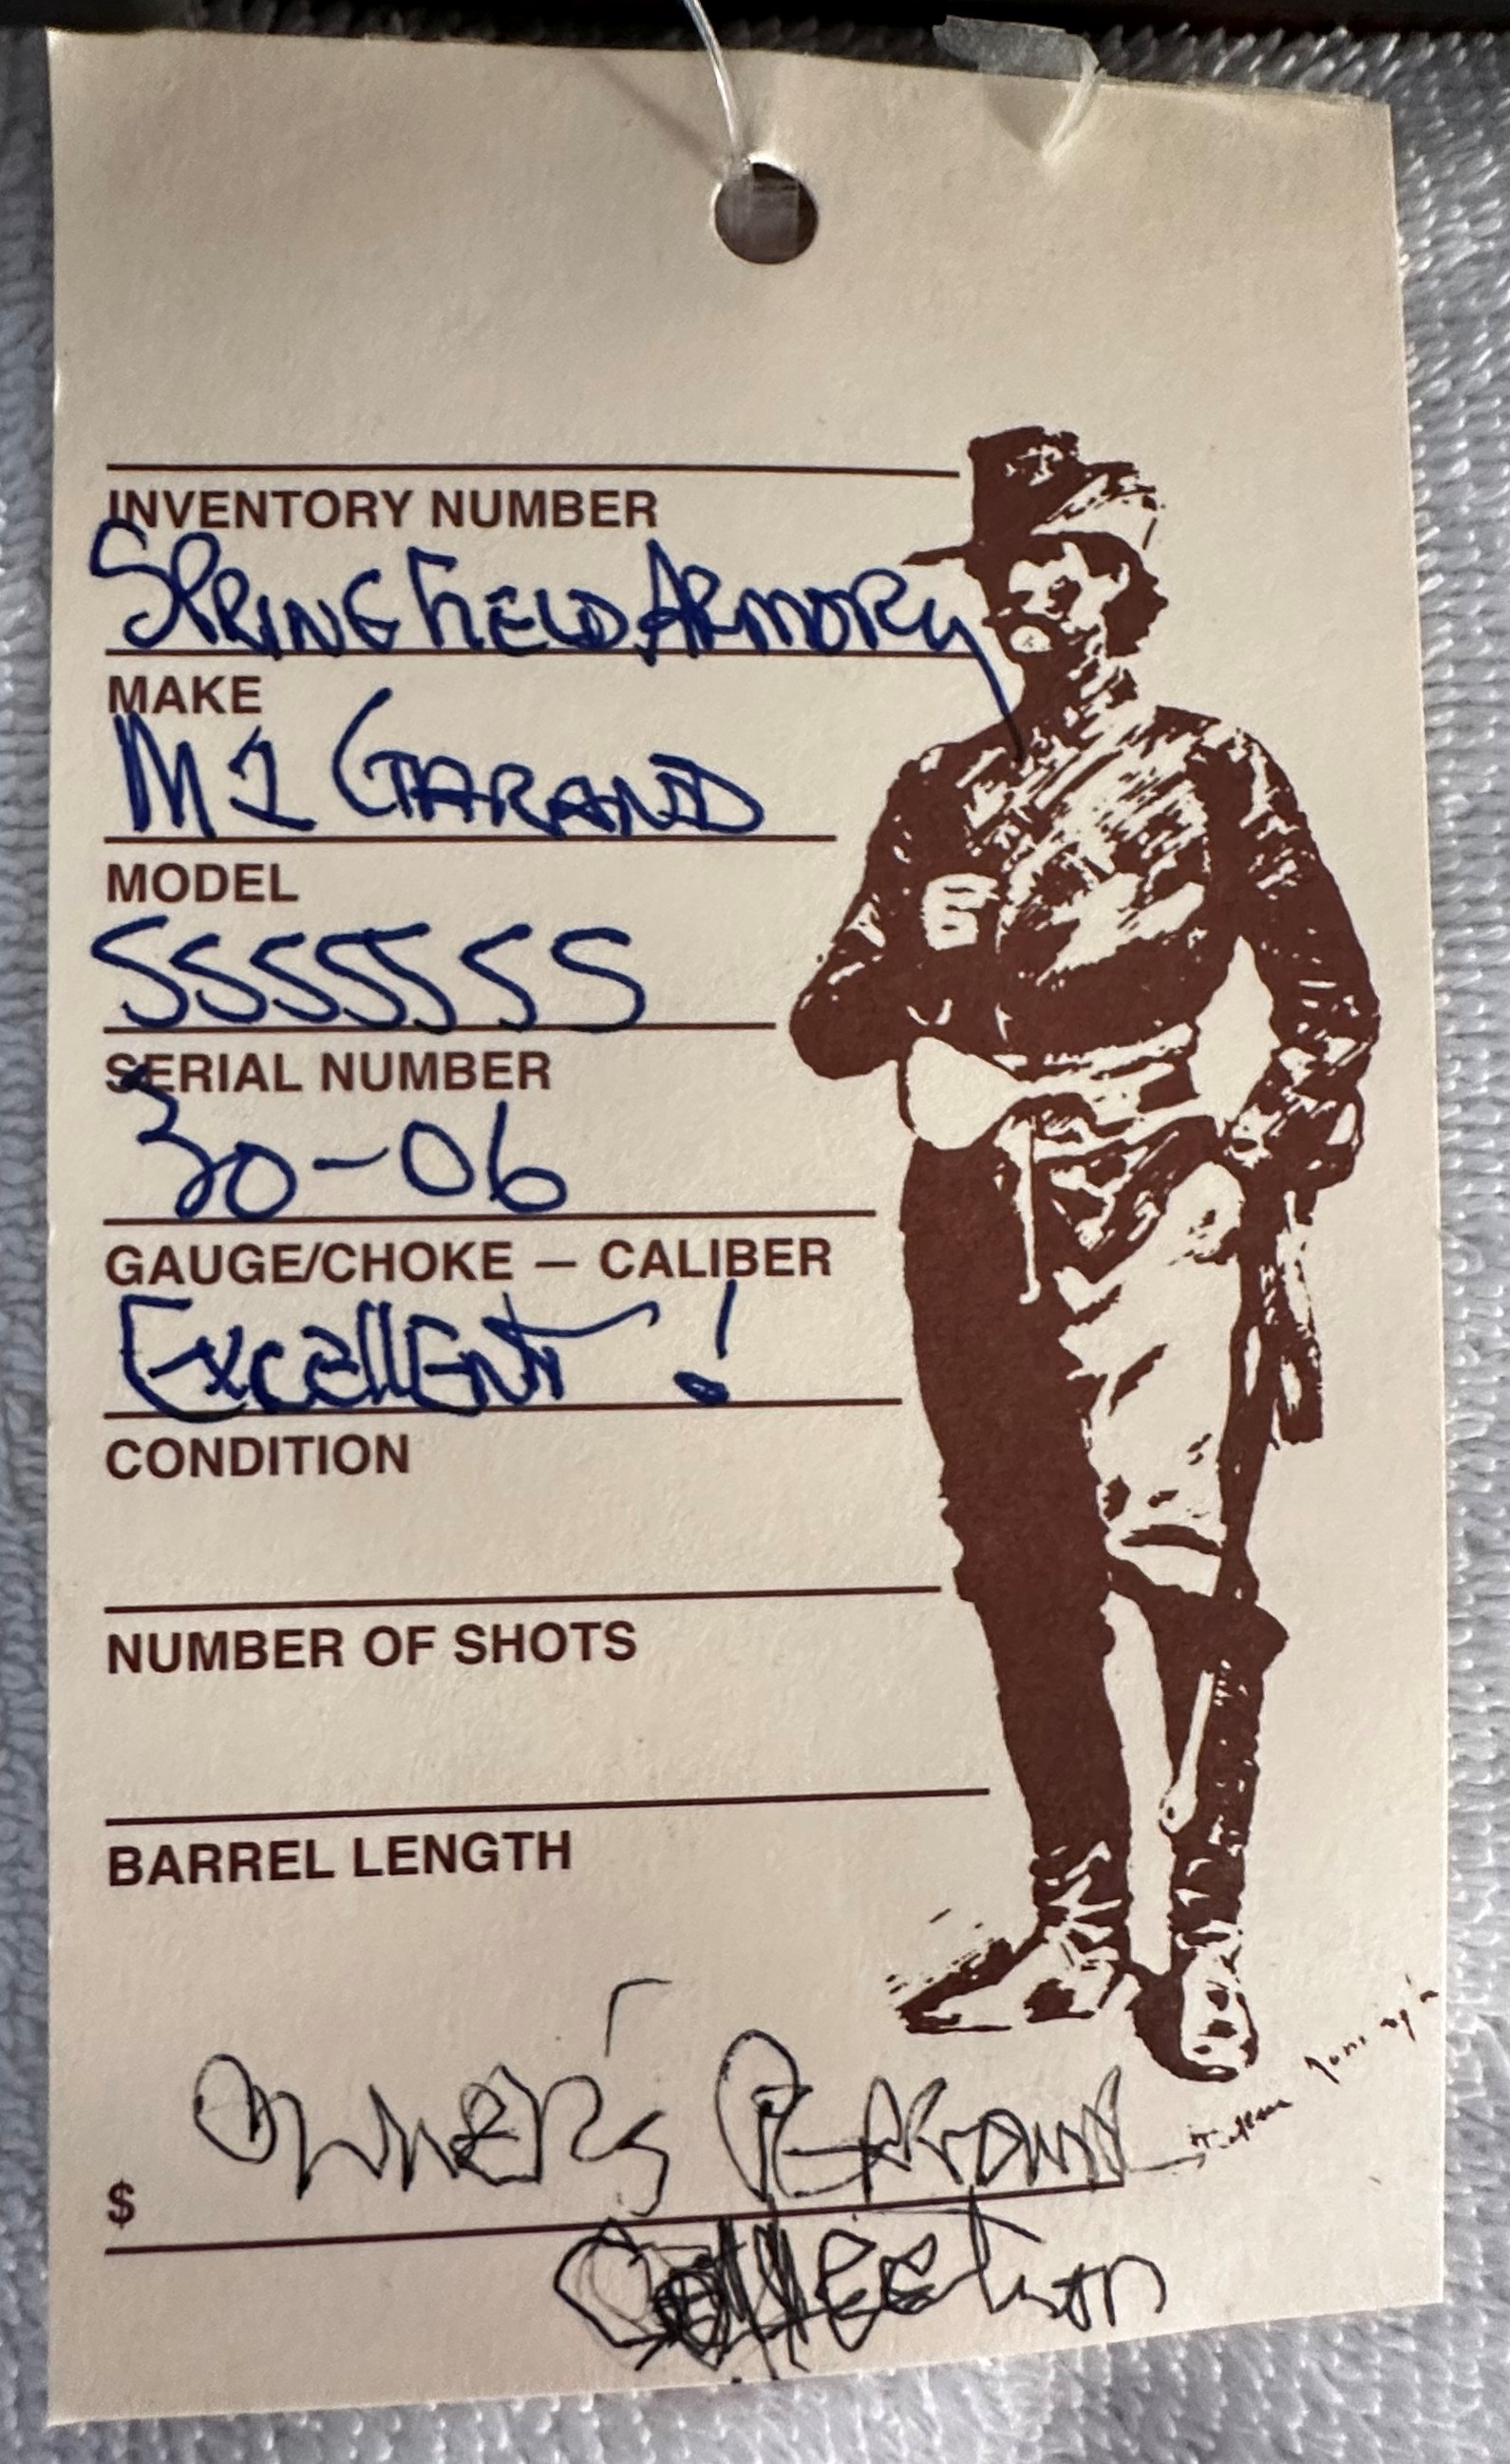 INVENTORY NUMBER
SPRINGFIELD ARMORY
MAKE
M1 GARAND
MODEL
5555555
SERIAL NUMBER
30-06
GAUGE/CHOKE — CALIBER
ExcellEnt !
CONDITION
NUMBER OF SHOTS
BARREL LENGTH
OWNER's PERSONAL
$
Collection